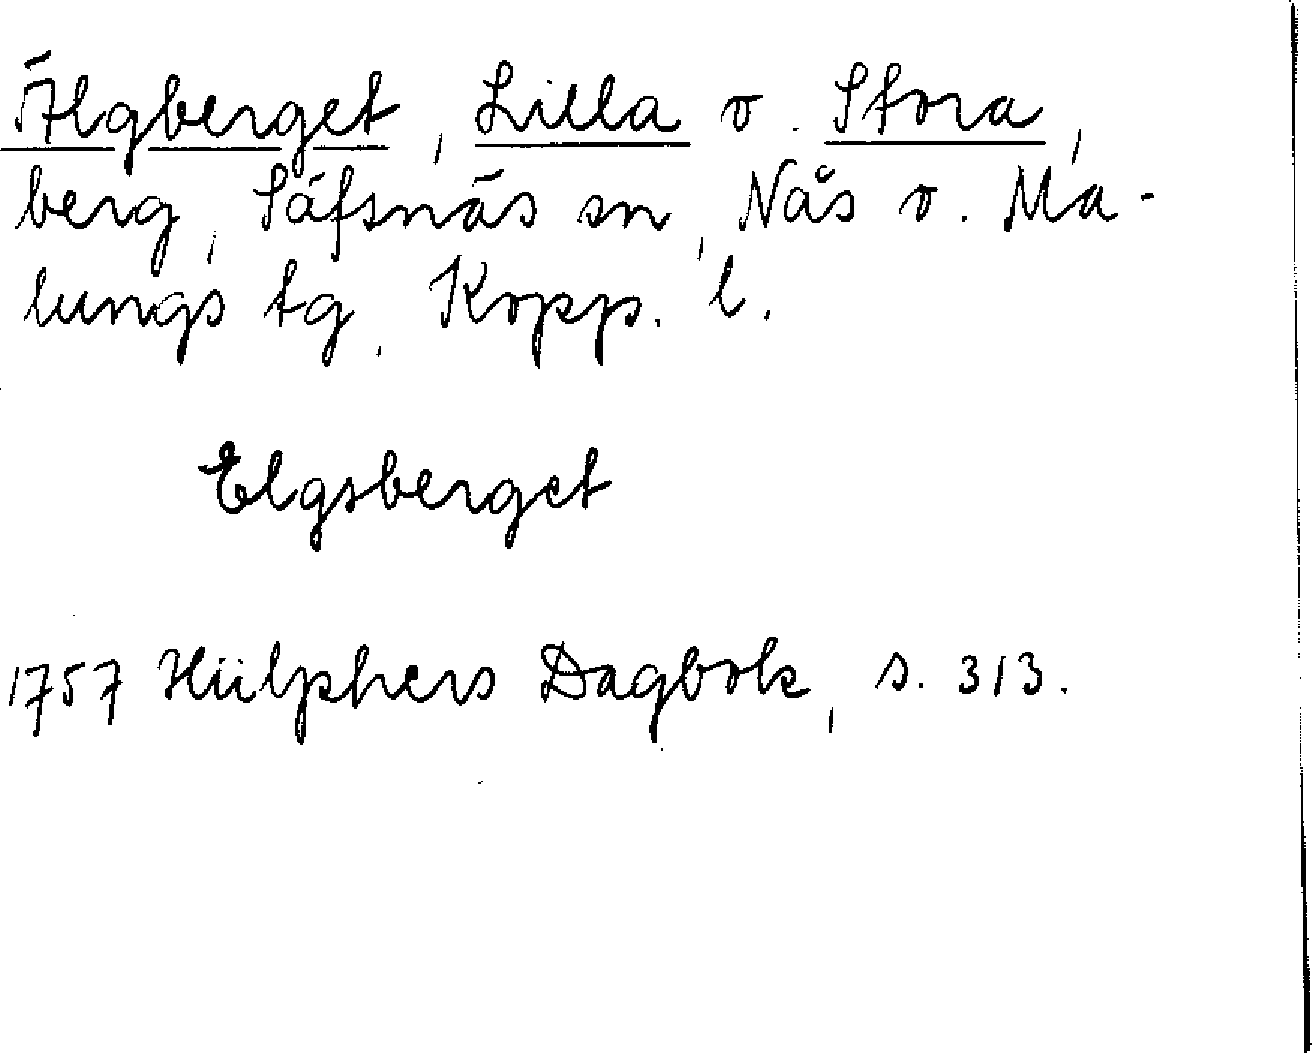 Älgberget, Lilla o. Stora,
berg, Säfsnäs sn, Nås o. Ma-
lungs tg, Kopp. l.
Elgsberget
1757 Hülphers Dagbok, s. 313.